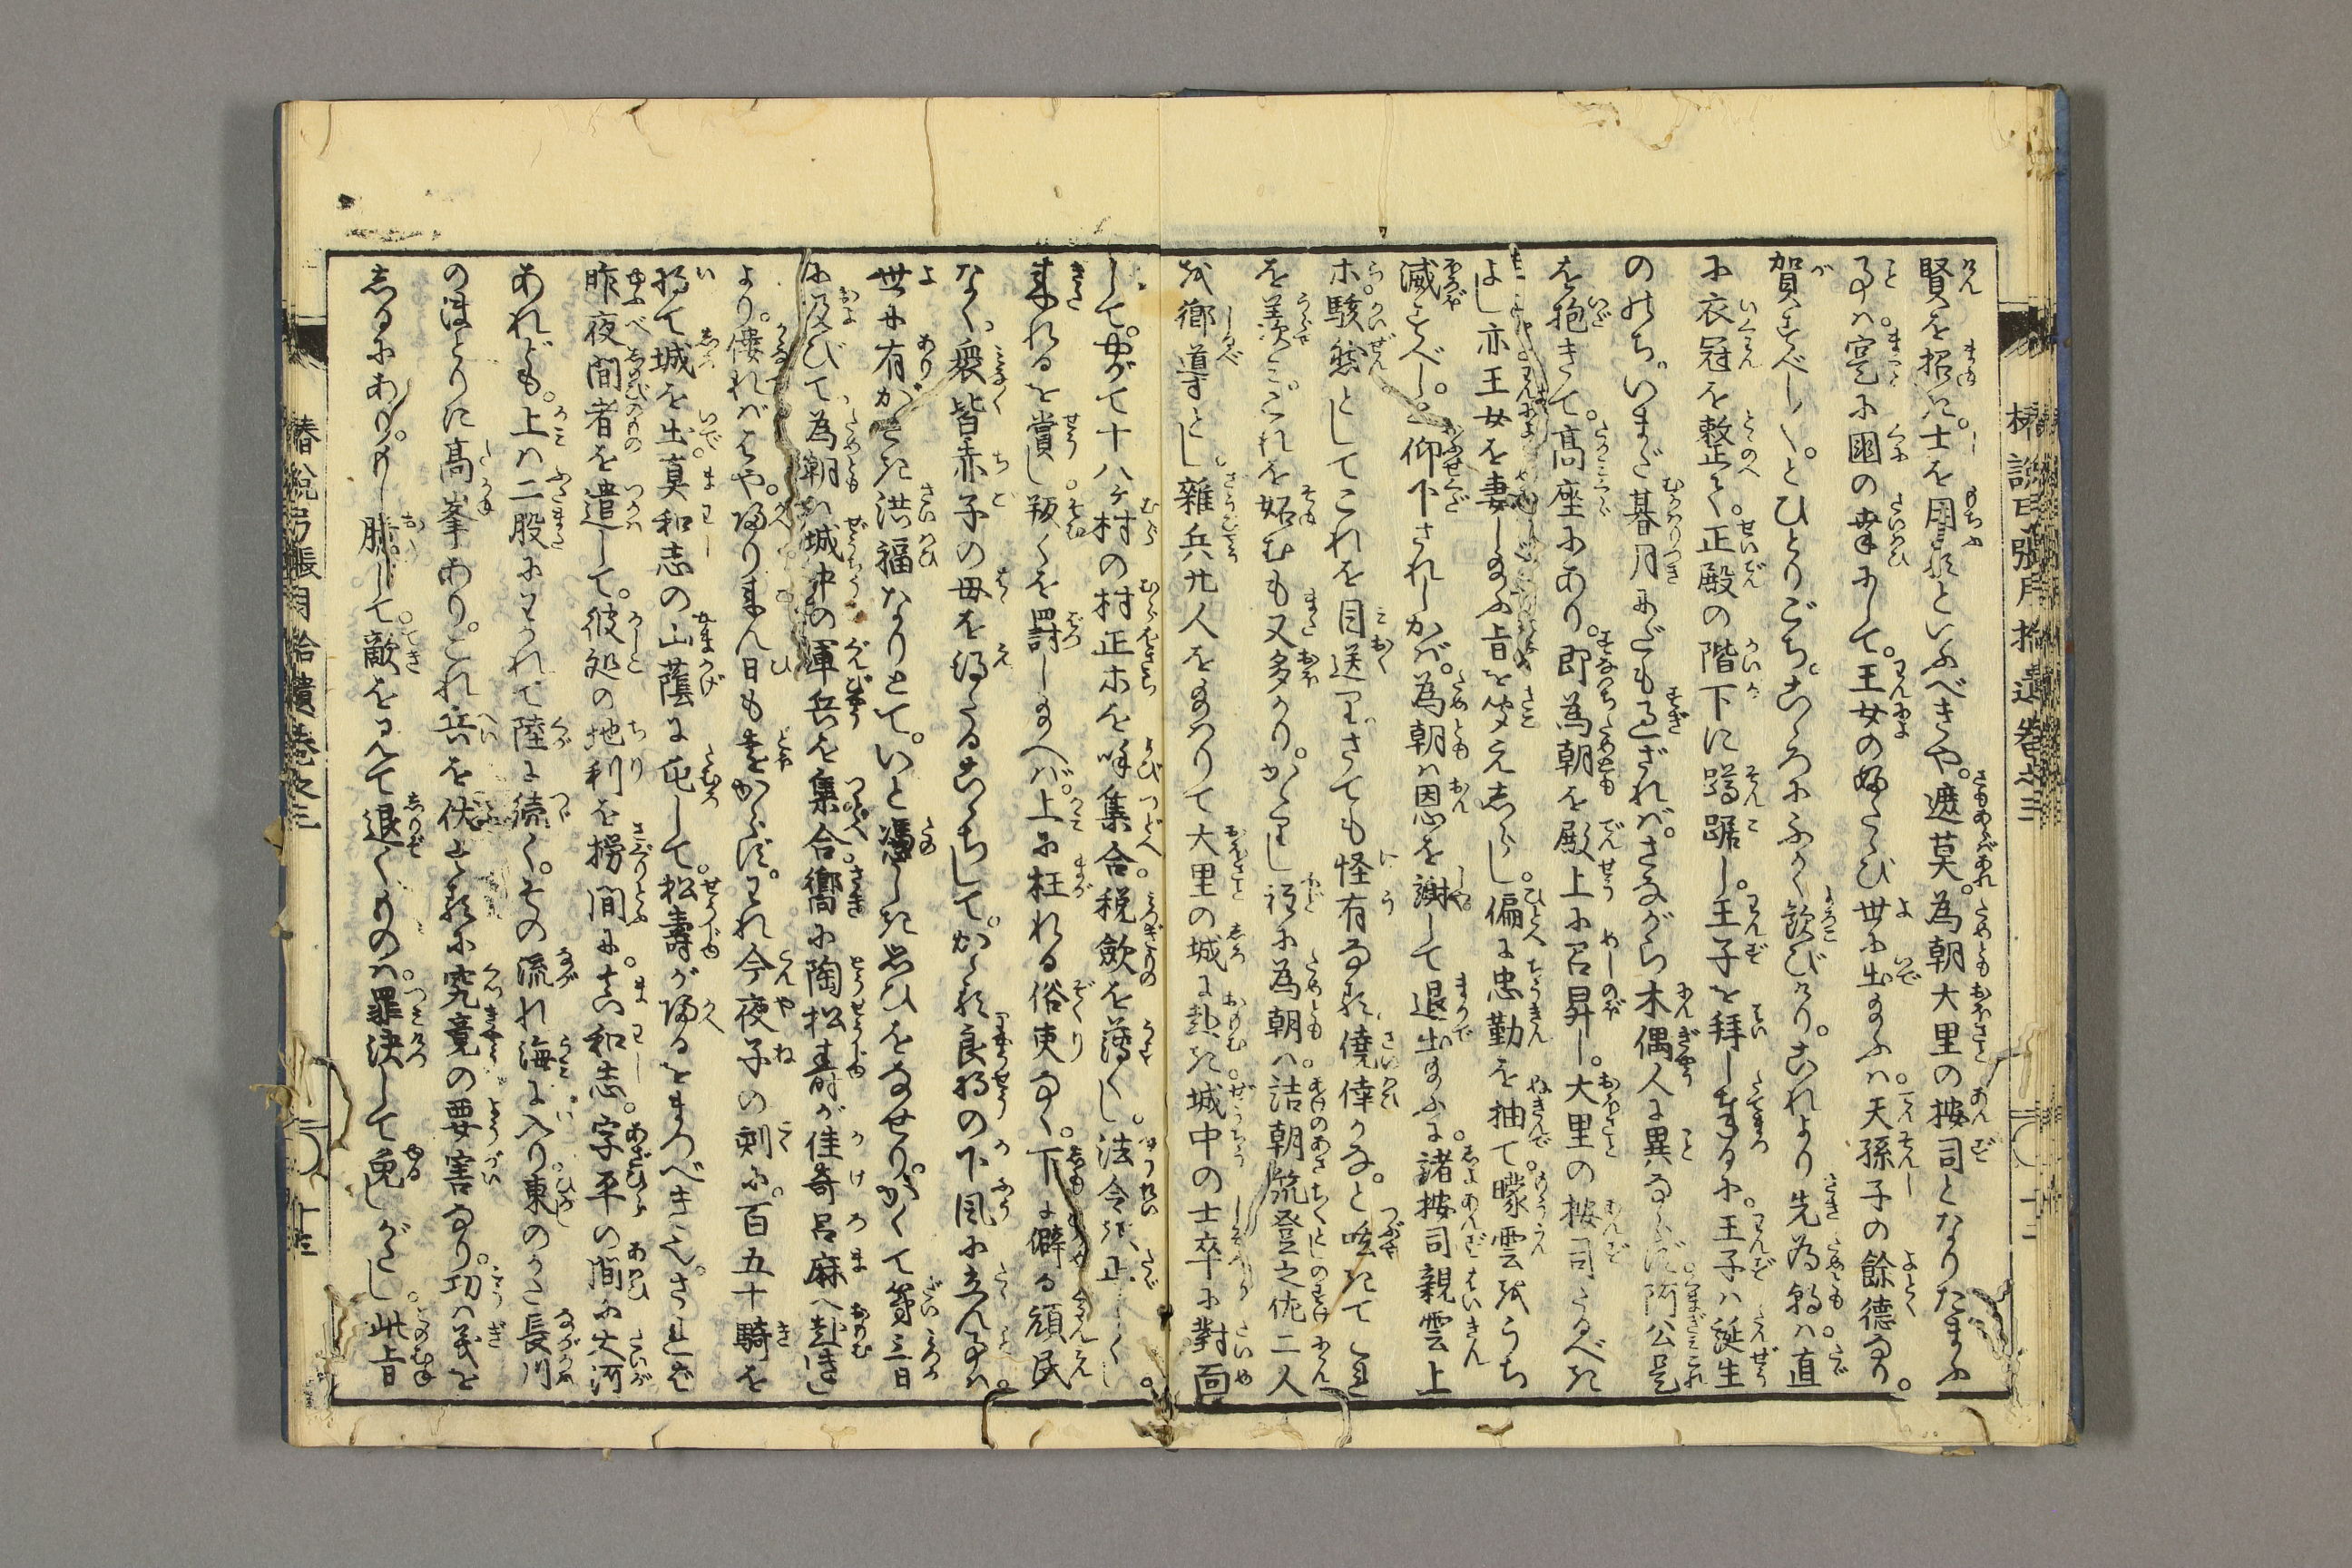 賢を招に。士を用るといふべきや。遮莫。為朝大里の按司となりたまふ
ことハ。寔に国の幸にして。王女の再び世に出給ふハ。天孫子の餘徳なり。
賀すべし〳〵。とひとりごち。こゝろにふかく歓びけり。これより先為朝ハ。直
に衣冠を整て。正殿の階下に蹲踞し。王子を拝し奉るに。王子ハ誕生
ののち。いまだ暮月にだも過ざれバ。さながら木偶人に異ならず。阿公是
を抱きて。高座にあり。即為朝を殿上に召昇し。大里の按司たるべき
よし亦王女を妻し給ふ旨を聞えしらし。偏に忠勤を抽て。曚雲をうち
滅すべし。と仰下されしかバ。為朝ハ恩を謝して退出給ふに。諸按司親雲上
ホ駭然としてこれを目送りさても怪有なる僥倖かな。と呟きてこれ
を羨ミ。これを妬むも又多かり。かくりし程に為朝ハ。詰朝筑登之佐二人
を郷導とし。雜兵廿人を給はりて大里の城に赴き城中の士卒に對面
して。やがて十八ヶ村の村正ホを呼集合。税歛を薄くし。法令を正しくし。
来れるを賞し叛くを罸し給へバ。上に枉れる俗吏なく。下に僻る頑民
なく。衆皆赤子の母を得たるこゝちして。かゝる良将の下風に立んことハ。
世に有がたき洪福なりとて。いと憑しき思ひをなせり。かくて第三日
に及びて為朝ハ城中の軍兵を集合。嚮に陶松寿が佳奇呂麻へ赴き
より。僂れバはや。帰り来ん日も遠からず。われ今夜子の刻に。百五十騎を
将て城を出。真和志の山蔭に屯して。松壽が帰るをまつべき也。されば
昨夜間者を遣して。彼処の地利を撈問に。真和志。字平の間に大河
あれども。上ハ二股にわかれて陸に續く。その流れ海に入り東のかた長川
のほとりに高峯あり。これ兵を伏するに究竟の要害なり。功ハ義を
しるにあり。もし臆して。敵を見て退くものハ。罪決して免しがたし。此旨
椿説弓張月拾遺巻之三
椿説弓張月拾遺巻之三